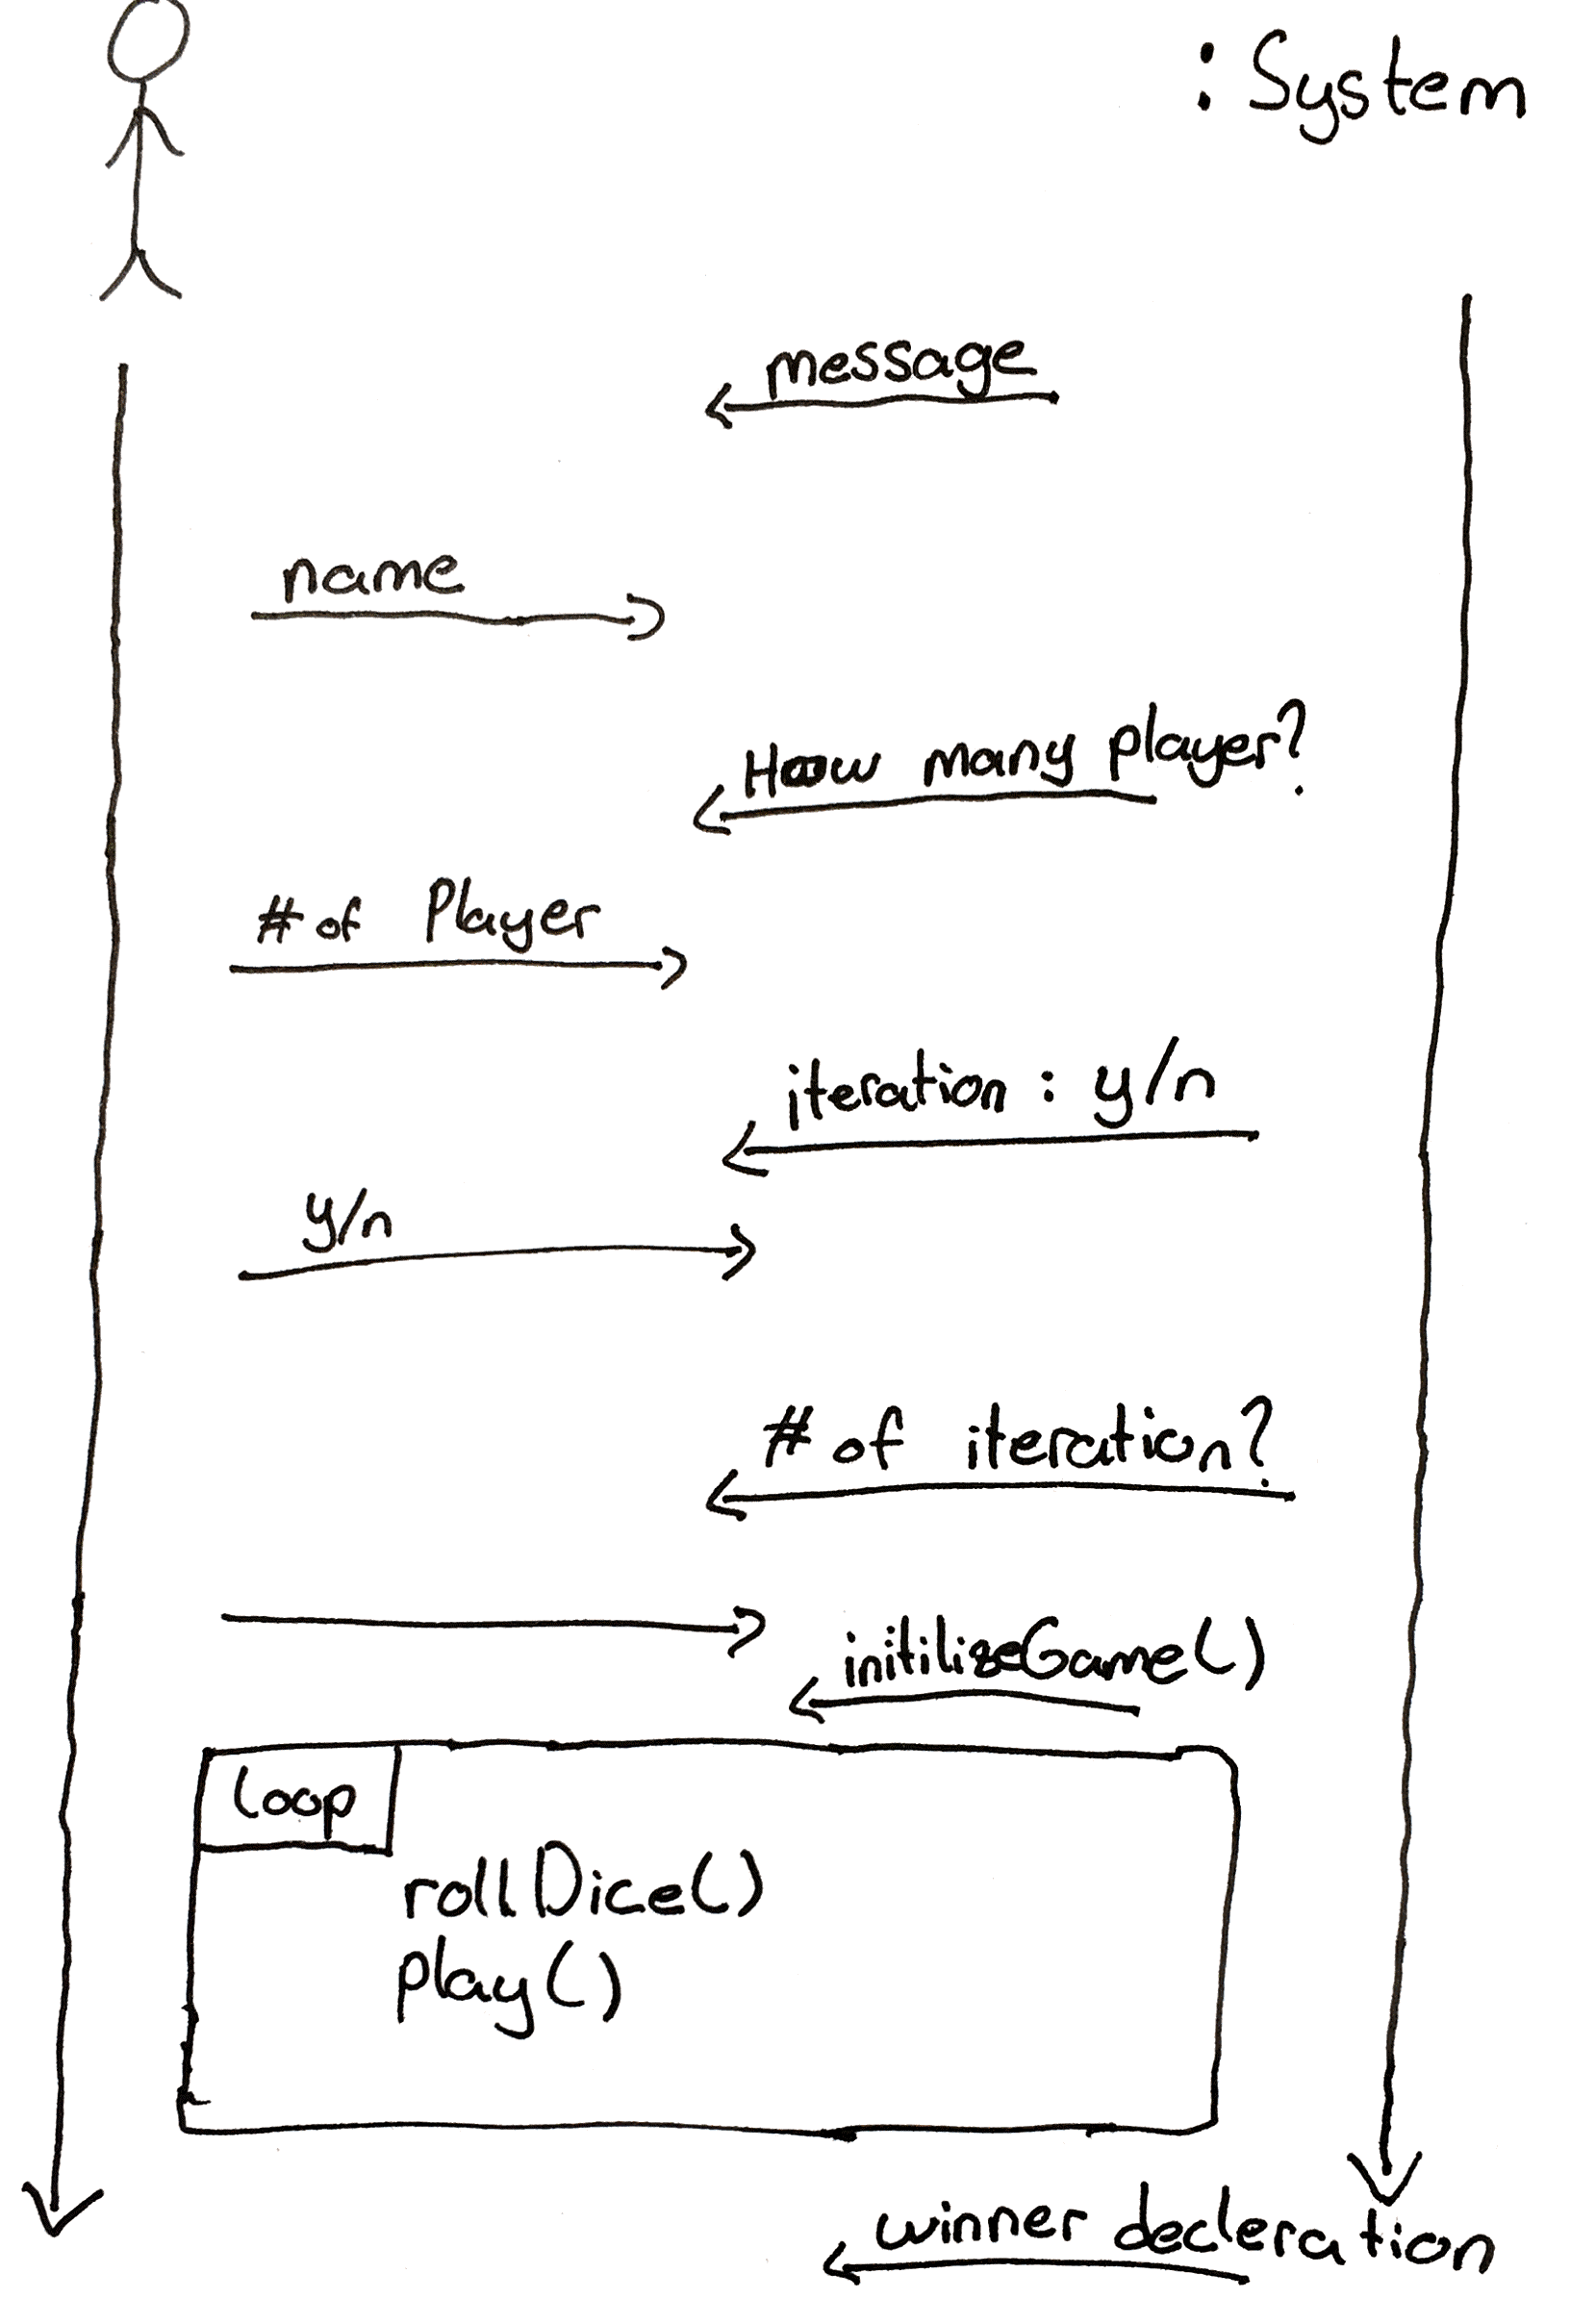 : System
message
name
How many player?
# of Player
iteration : y/n
y/n
# of iteration?
initilizeGame()
Loop
rollDice()
play()
winner decleration